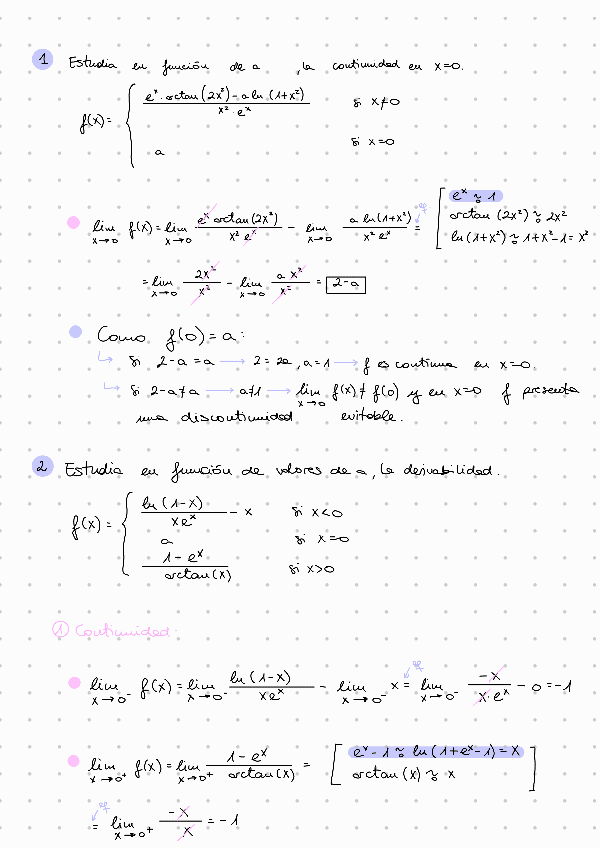 1 Estudia en función de a , la continuidad en x=0.
f(x)= { (e^x · arctan(2x²) - a ln(1+x²)) / (x² · e^x) si x≠0
a si x=0
lim x→0 f(x) = lim x→0 (e^x arctan(2x²)) / (x² e^x) - lim x→0 (a ln(1+x²)) / (x² e^x) = [ e^x ~0 1
arctan(2x²) ~0 2x²
ln(1+x²) ~0 1+x²-1 = x²
= lim x→0 2x²/x² - lim x→0 a x²/x² = 2-a
Como f(0) = a:
↳ Si 2-a = a → 2 = 2a, a=1 → f es continua en x=0.
↳ Si 2-a≠a → a≠1 → lim x→0 f(x) ≠ f(0) y en x=0 f presenta
una discontinuidad evitable.
2 Estudia en función de valores de a, la derivabilidad.
f(x) = { ln(1-x) / (x e^x) - x si x<0
a si x=0
(1-e^x) / arctan(x) si x>0
① Continuidad.
lim x→0⁻ f(x) = lim x→0⁻ ln(1-x) / (x e^x) - lim x→0⁻ x = lim x→0⁻ -x / (x·e^x) - 0 = -1
lim x→0⁺ f(x) = lim x→0⁺ (1-e^x) / arctan(x) = [ e^x - 1 ~0 ln(1+e^x-1) = x
arctan(x) ~0 x ]
= lim x→0⁺ -x/x = -1